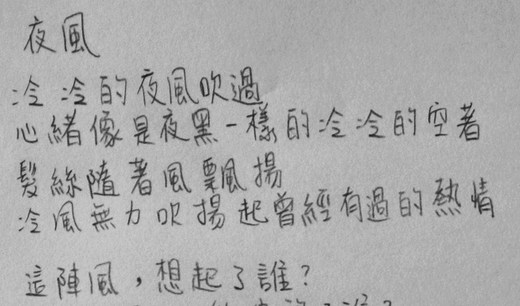 夜風
冷冷的夜風吹過
心緒像是夜黑一樣的冷冷的空著
髮絲隨著風飄揚
冷風無力吹揚起曾經有過的熱情
這陣風，想起了誰？